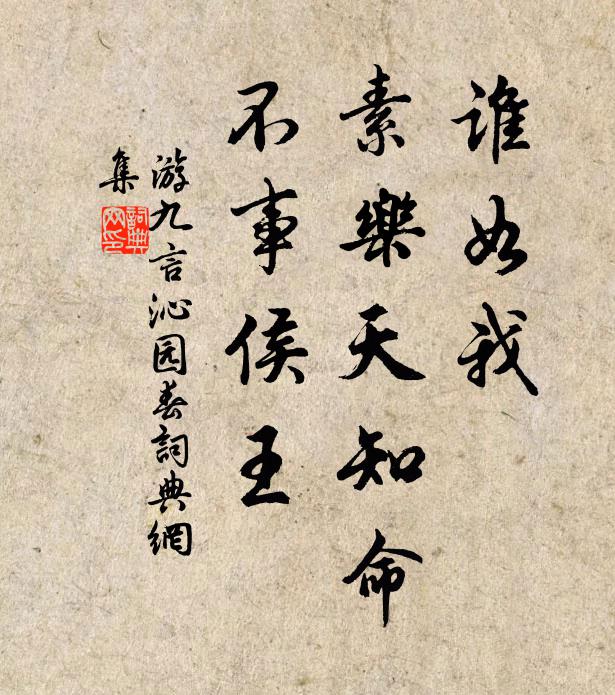 誰如我
素樂天知命
不事侯王
游九言沁园春詞典網
集
詞典
网印